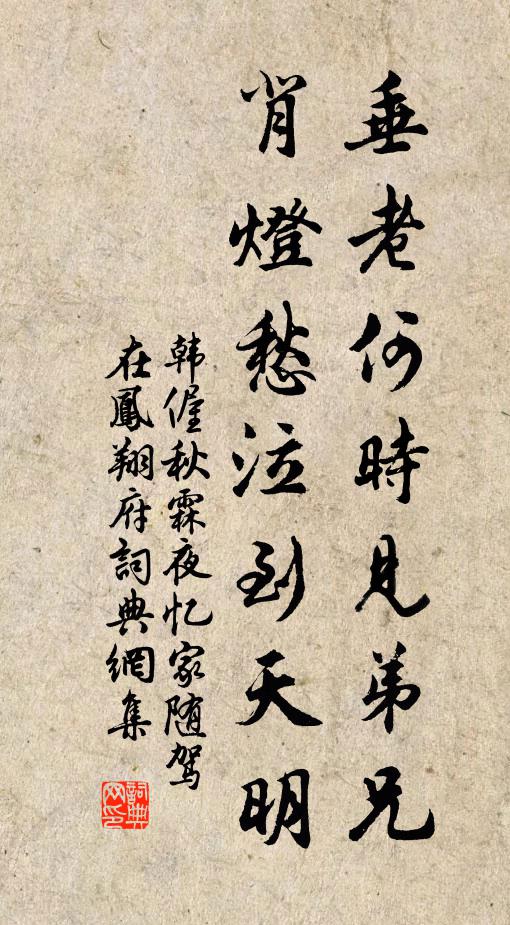 垂老何時見弟兄
背燈愁泣到天明
韩偓秋霖夜忆家随驾
在鳳翔府詞典網集
詞典
网印